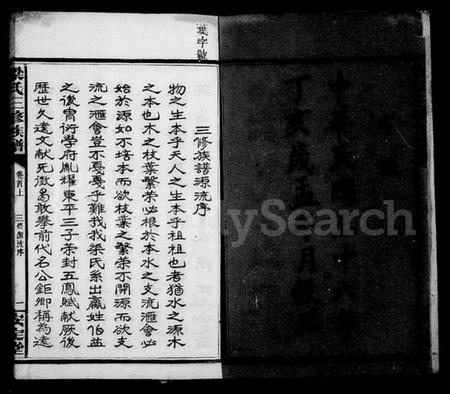 葉字號
三修族譜源流序
物之生本乎天人之生本乎祖祖也者猶水之源木
之本也木之枝葉繁榮必根於本水之支流滙會必
始於源如不培本而欲枝葉之繁榮不開源而欲支
流之滙會豈不戞戞乎難哉我梁氏系出嬴姓伯益
之後胄衍學府胤燿東平三子榮封五鳳賦献厥後
歷世久遠文献旡徵曷敢摹前代名公鉅卿稱為遠
梁氏三修族譜
卷首上
三修源流序
一
安定堂
中華民國
丁亥歲孟
月
MySearch